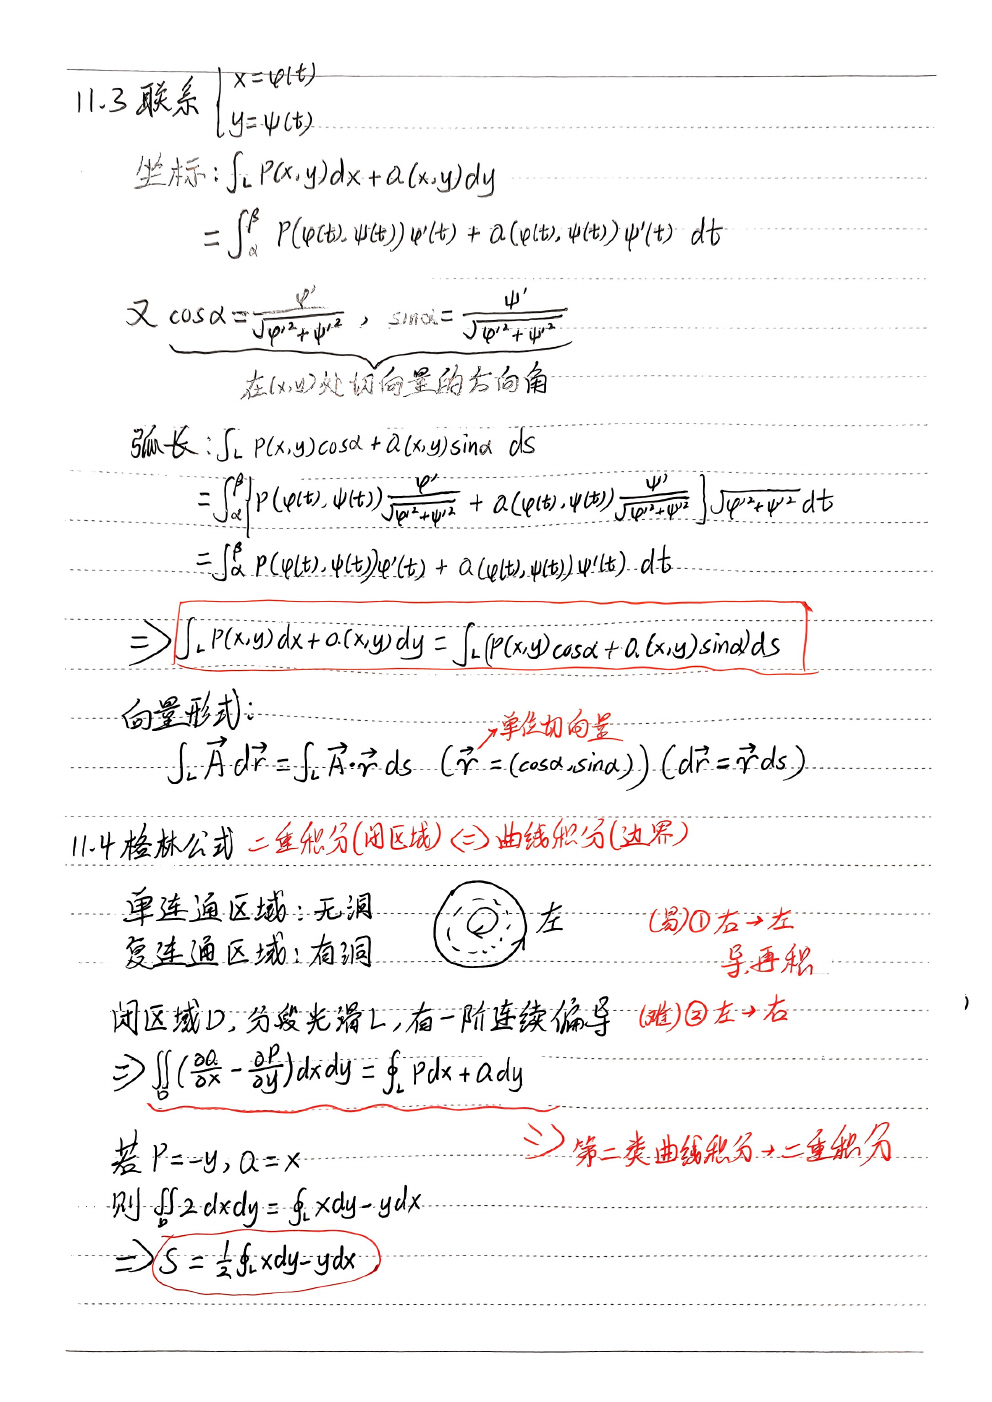 11.3 联系 { x=φ(t)
y=ψ(t)
坐标: ∫_L P(x,y)dx+Q(x,y)dy
= ∫_α^β P(φ(t),ψ(t))φ'(t) + Q(φ(t),ψ(t))ψ'(t) dt
又 cosα = φ'/√(φ'²+ψ'²) , sinα = ψ'/√(φ'²+ψ'²)
在(x,y)处切向量的方向角
弧长: ∫_L P(x,y)cosα+Q(x,y)sinα ds
= ∫_α^β [P(φ(t),ψ(t)) φ'/√(φ'²+ψ'²) + Q(φ(t),ψ(t)) ψ'/√(φ'²+ψ'²)] √(φ'²+ψ'²) dt
= ∫_α^β P(φ(t),ψ(t))φ'(t) + Q(φ(t),ψ(t))ψ'(t) dt
⇒ ∫_L P(x,y)dx+Q(x,y)dy = ∫_L (P(x,y)cosα+Q(x,y)sinα)ds
向量形式:
↗单位切向量
∫_L A⃗ dr⃗ = ∫_L A⃗·τ⃗ ds (τ⃗=(cosα,sinα)) (dr⃗=τ⃗ds)
11.4 格林公式 二重积分(闭区域) <=> 曲线积分(边界)
单连通区域: 无洞 左 (易)① 右→左
复连通区域: 有洞 导再积
闭区域D, 分段光滑L, 有一阶连续偏导 (难)② 左→右
⇒ ∬_D (∂Q/∂x - ∂P/∂y)dxdy = ∮_L Pdx+Qdy
⇒ 第二类曲线积分→二重积分
若 P=-y, Q=x
则 ∬_D 2dxdy = ∮_L xdy-ydx
⇒ S = 1/2 ∮_L xdy-ydx